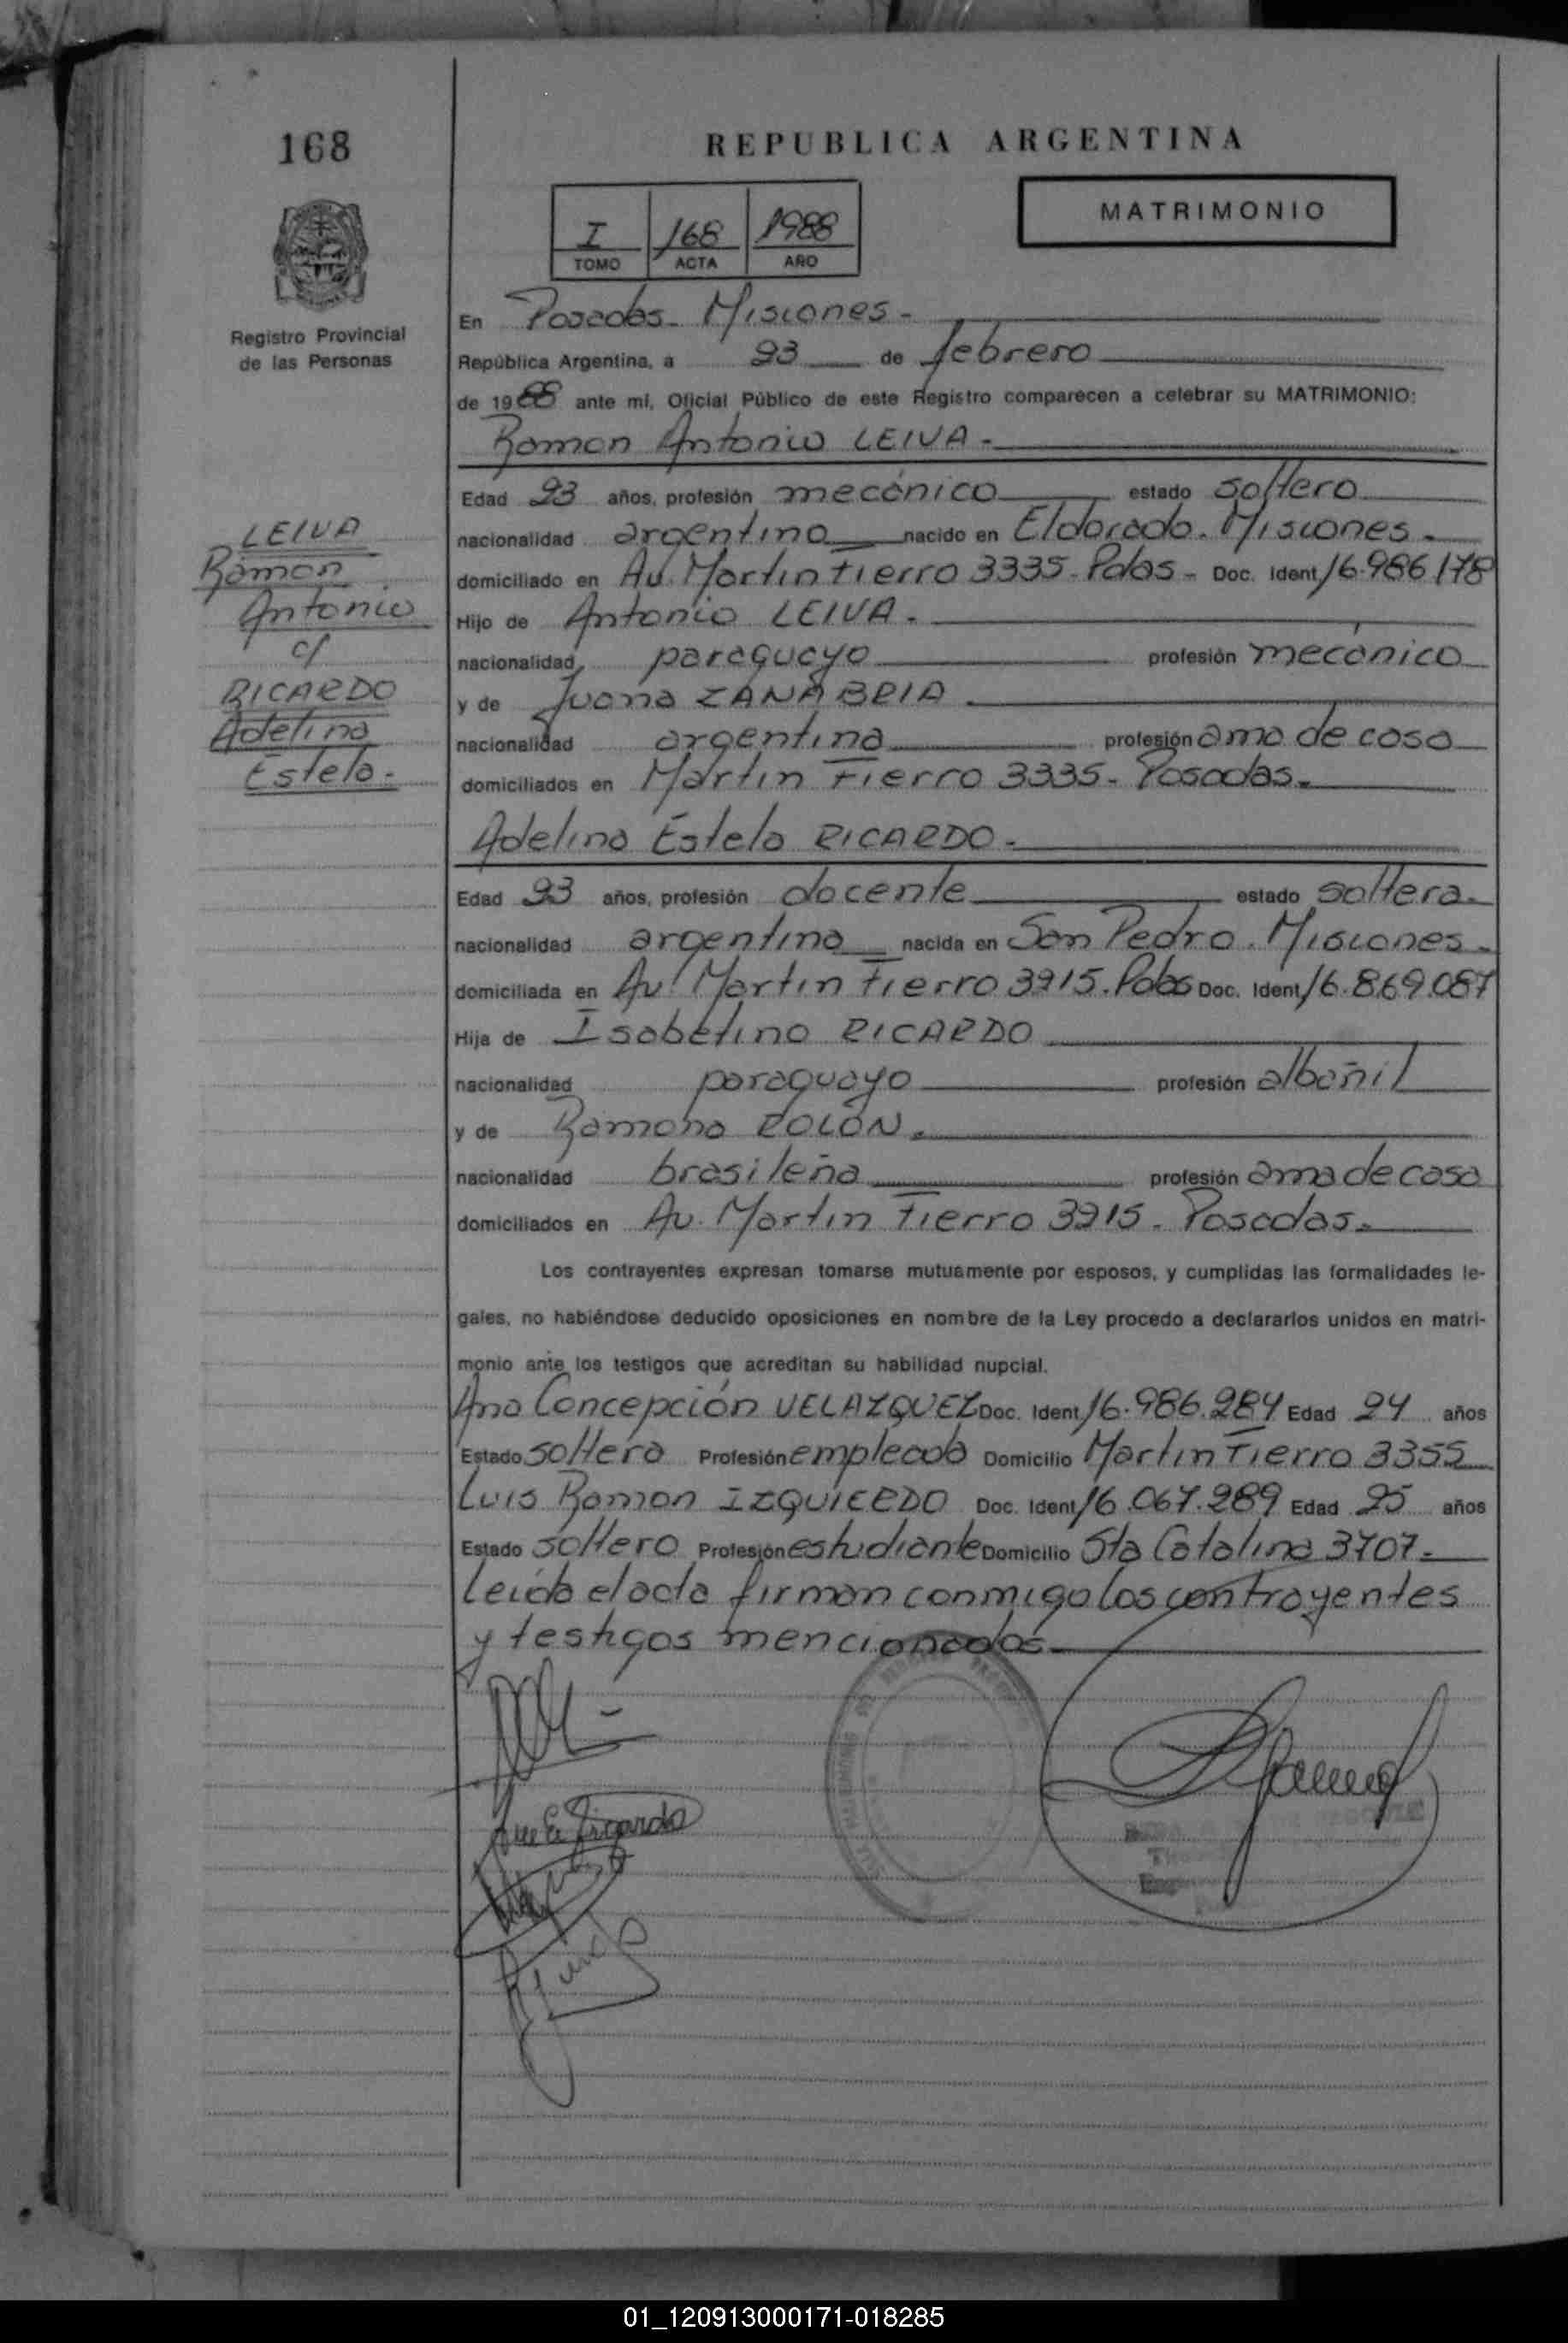 168
REPUBLICA ARGENTINA
MATRIMONIO
I 168 1988
TOMO ACTA AÑO
Registro Provincial
de las Personas
En Posadas - Misiones -
República Argentina, a 23 de febrero
de 1988 ante mí, Oficial Público de este Registro comparecen a celebrar su MATRIMONIO:
Ramon Antonio LEIVA -
LEIVA
Ramon
Antonio
c/
RICARDO
Adelina
Estela -
Edad 23 años, profesión mecánico estado soltero
nacionalidad argentina nacido en Eldorado - Misiones -
domiciliado en Av. Martin Fierro 3335 - Pdas - Doc. Ident 16.986.178
Hijo de Antonio LEIVA -
nacionalidad paraguayo profesión mecánico
y de Juana ZANABRIA -
nacionalidad argentina profesión ama de casa
domiciliados en Martin Fierro 3335 - Posadas -
Adelina Estela RICARDO -
Edad 23 años, profesión docente estado soltera -
nacionalidad argentina nacida en San Pedro - Misiones -
domiciliada en Av. Martin Fierro 3215 - Pdas Doc. Ident 16.869.087
Hija de Isabelino RICARDO
nacionalidad paraguayo profesión albañil
y de Ramona ROLÓN -
nacionalidad brasileña profesión ama de casa
domiciliados en Av. Martin Fierro 3215 - Posadas -
Los contrayentes expresan tomarse mutuamente por esposos, y cumplidas las formalidades le-
gales, no habiéndose deducido oposiciones en nombre de la Ley procedo a declararlos unidos en matri-
monio ante los testigos que acreditan su habilidad nupcial.
Ana Concepción VELAZQUEZ Doc. Ident 16.986.284 Edad 24 años
Estado soltera Profesión empleada Domicilio Martin Fierro 3355
Luis Ramon IZQUIERDO Doc. Ident 16.067.289 Edad 25 años
Estado soltero Profesión estudiante Domicilio Sta Catalina 3707 -
Leida el acta firman conmigo los contrayentes
y testigos mencionados
Ricardo
01_120913000171-018285